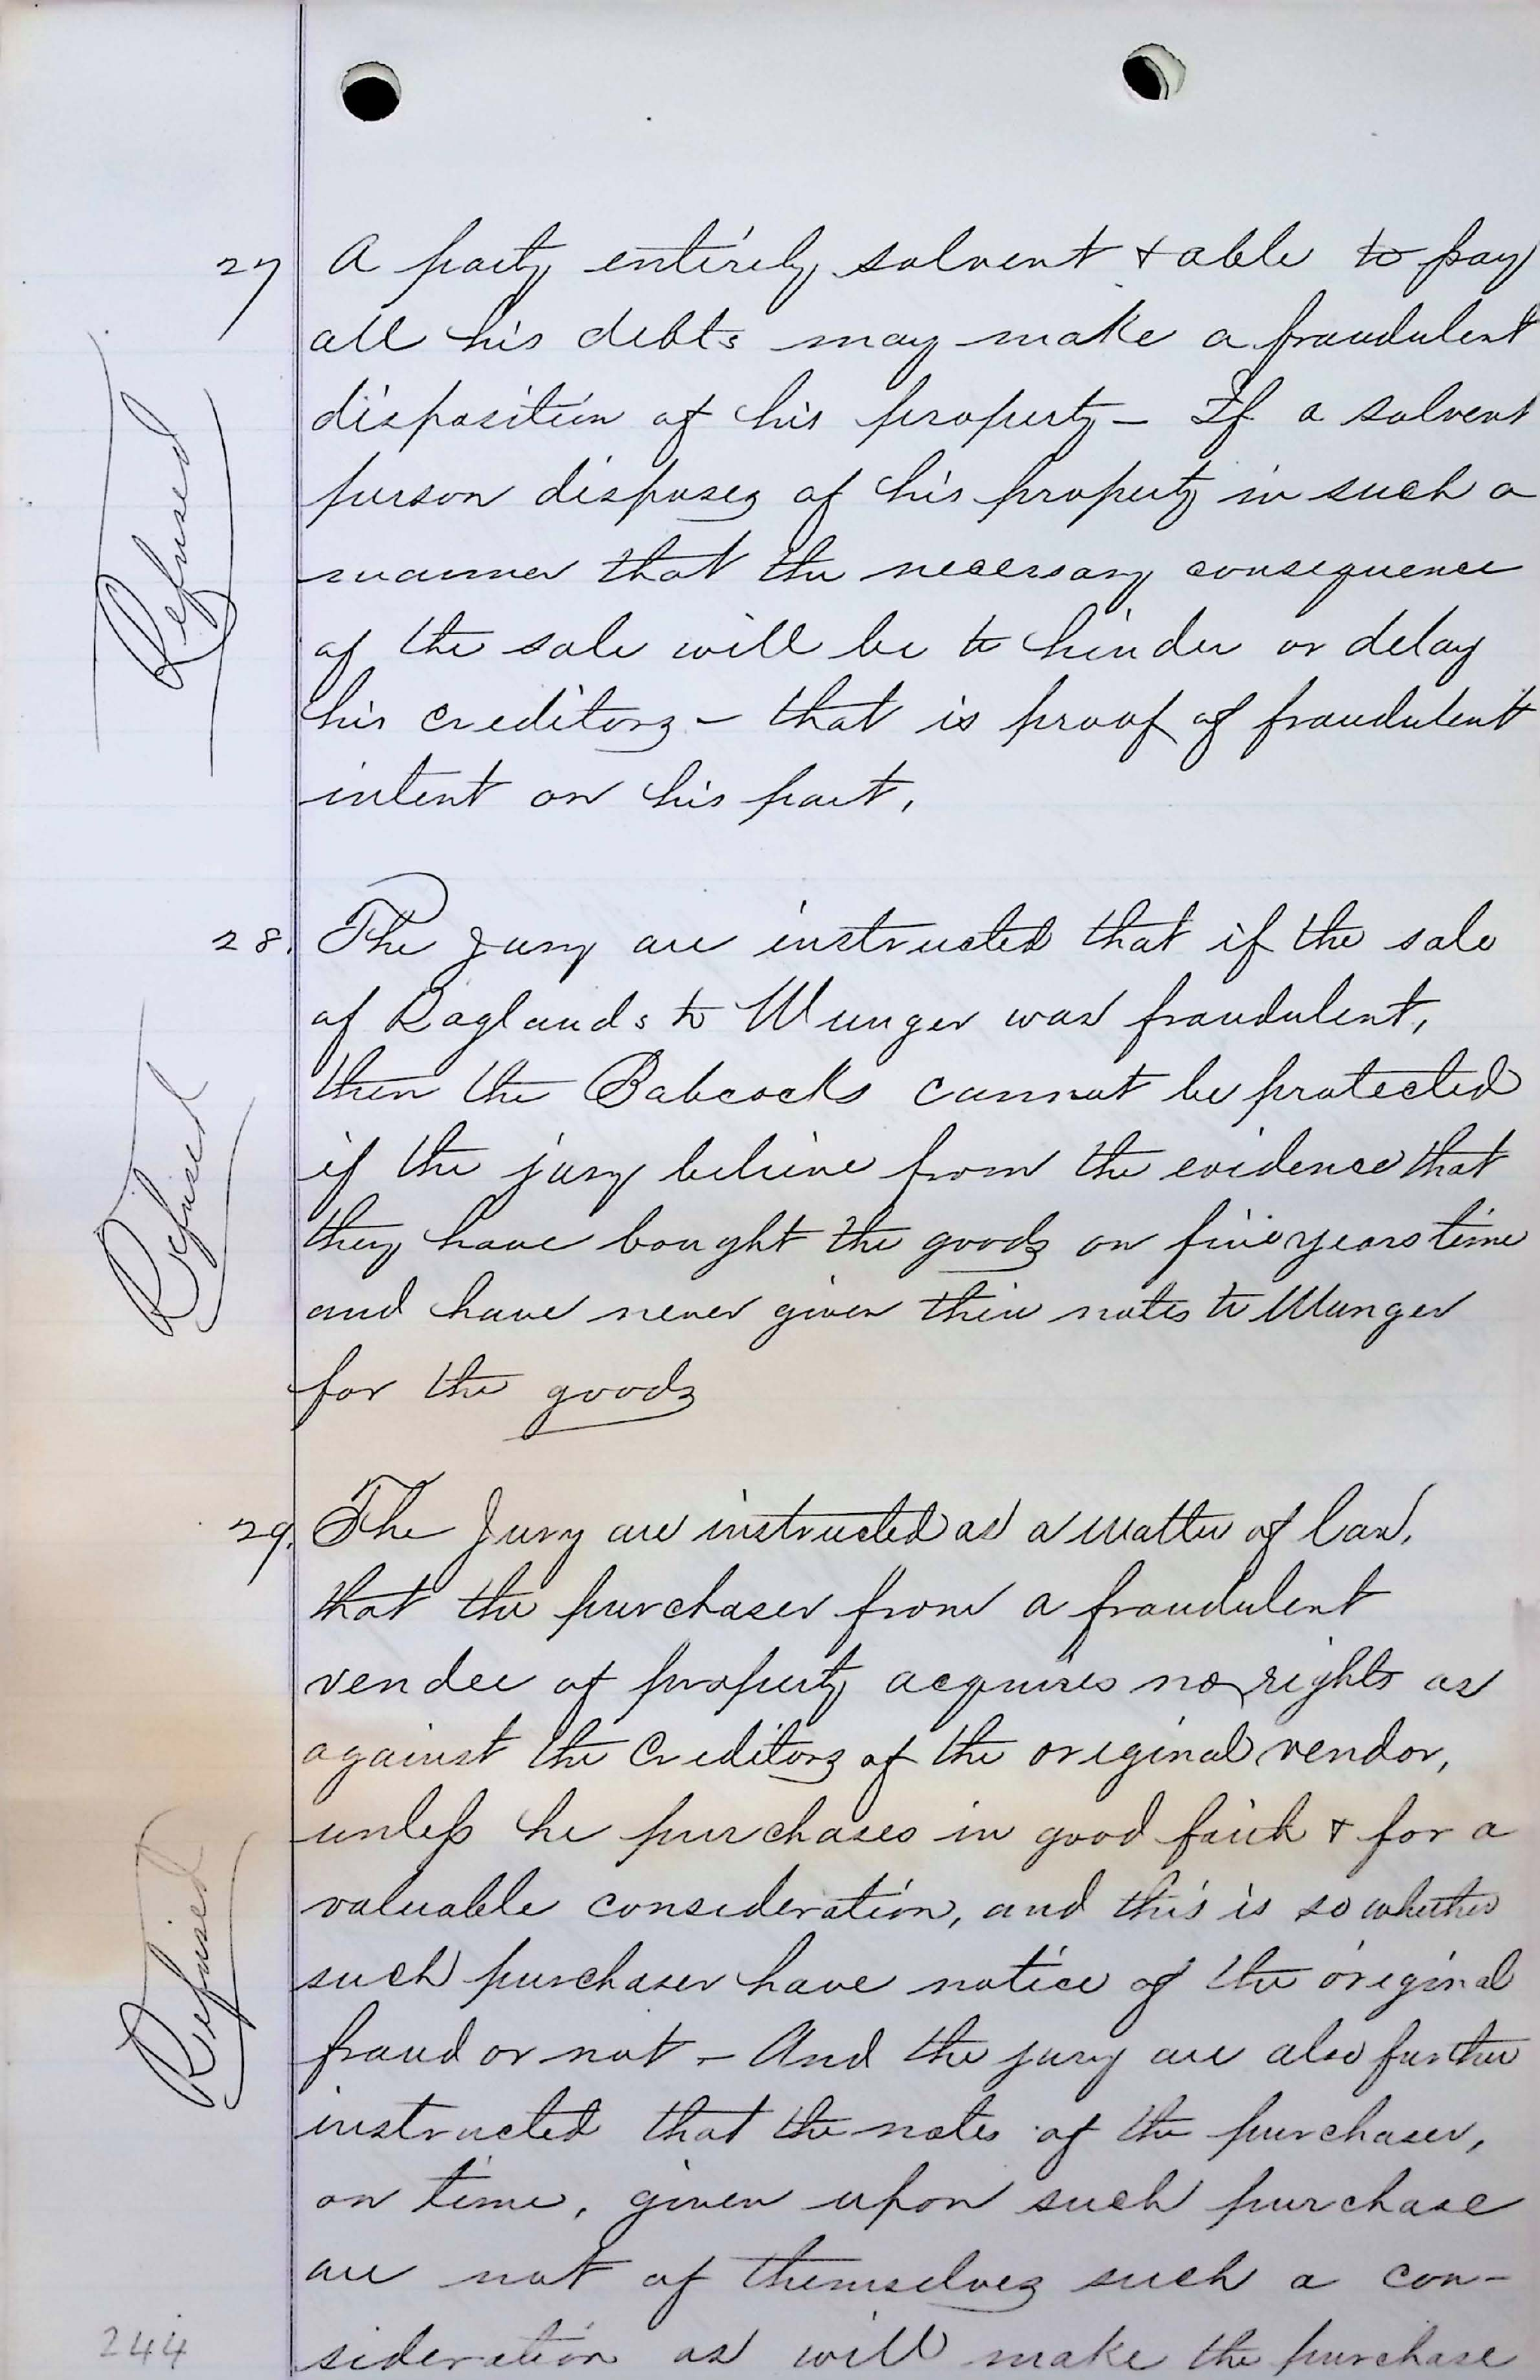 27 A party entirely solvent & able to pay
all his debts may make a fraudulent
disposition of his property — If a solvent
person disposes of his property in such a
manner that the necessary consequence
of the sale will be to hinder or delay
his creditors — that is proof of fraudulent
intent on his part.
Refused
28. The Jury are instructed that if the sale
of Raglands to Munger was fraudulent,
then the Babcocks cannot be protected
if the jury believe from the evidence that
they have bought the goods on five years time
and have never given their notes to Munger
for the goods
Refused
29. The Jury are instructed as a matter of law,
that the purchaser from a fraudulent
vendee of property acquires no rights as
against the Creditors of the original vendor,
unless he purchases in good faith & for a
valuable consideration, and this is so whether
such purchaser have notice of the original
fraud or not — And the jury are also further
instructed that the notes of the purchaser,
on time, given upon such purchase
are not of themselves such a con-
sideration as will make the purchase
Refused
244